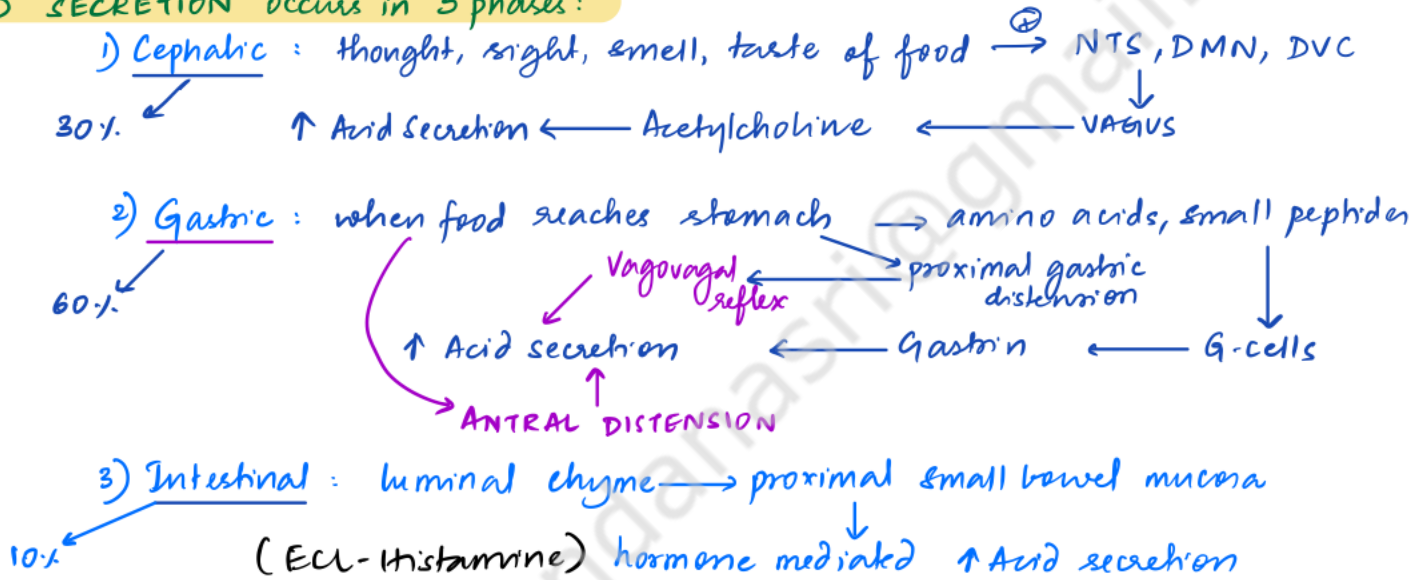 SECRETION occurs in 3 phases:
1) Cephalic : thought, sight, smell, taste of food ⊕→ NTS, DMN, DVC
↓
30%. ↑ Acid secretion ← Acetylcholine ← VAGUS
2) Gastric : when food reaches stomach → amino acids, small peptides
Vagovagal reflex ← proximal gastric distension
60%.
↑ Acid secretion ← Gastrin ← G-cells
↑
ANTRAL DISTENSION
3) Intestinal : luminal chyme → proximal small bowel mucosa
↓
10% (ECL-Histamine) hormone mediated ↑ Acid secretion